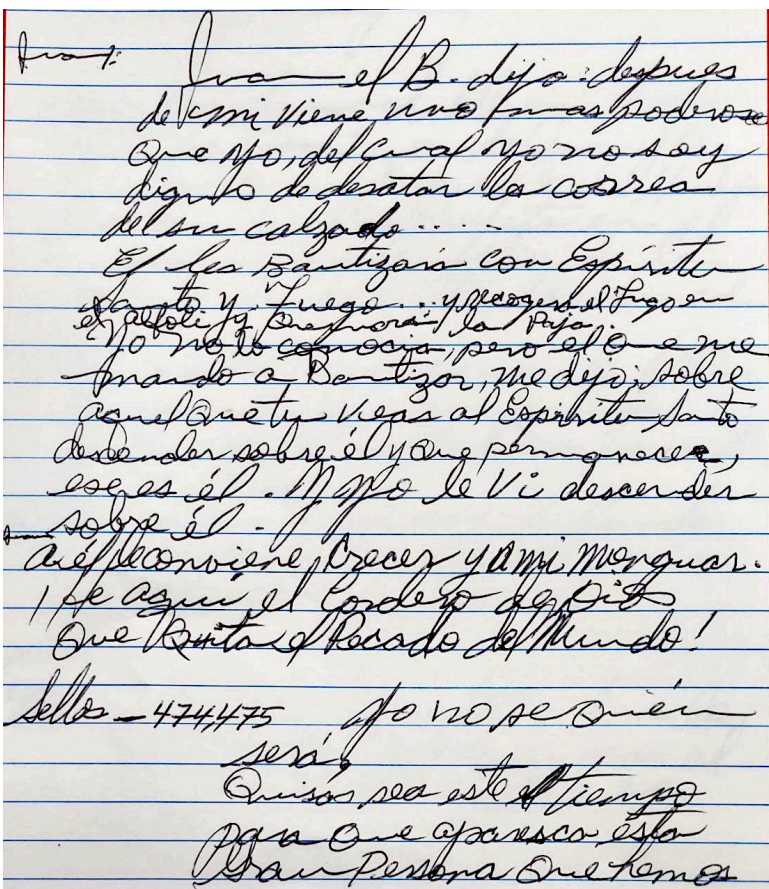 Juan:
Juan el B. dijo: después
de mi viene uno mas poderoso
Que yo, del cual yo no soy
digno de desatar la correa
de su calzado.....
El les Bautizará con Espíritu
Santo y Fuego... y recogerá el Trigo en
el alfolí y Quemará la Paja.
Yo no lo conocia, pero el Que me
mando a Bautizar, me dijo: sobre
aquel Que tu veas al Espíritu Santo
descender sobre él y que permanece,
ese es él. Y Yo le Vi descender
sobre él.
a él le conviene Crecer y a mi menguar.
¡He aquí el Cordero de Dios
Que Quita el Pecado del Mundo!
Sellos - 474,475 Yo no se Quién
será,
Quisás sea este el tiempo
para Que aparesca esta
Gran Persona Que hemos